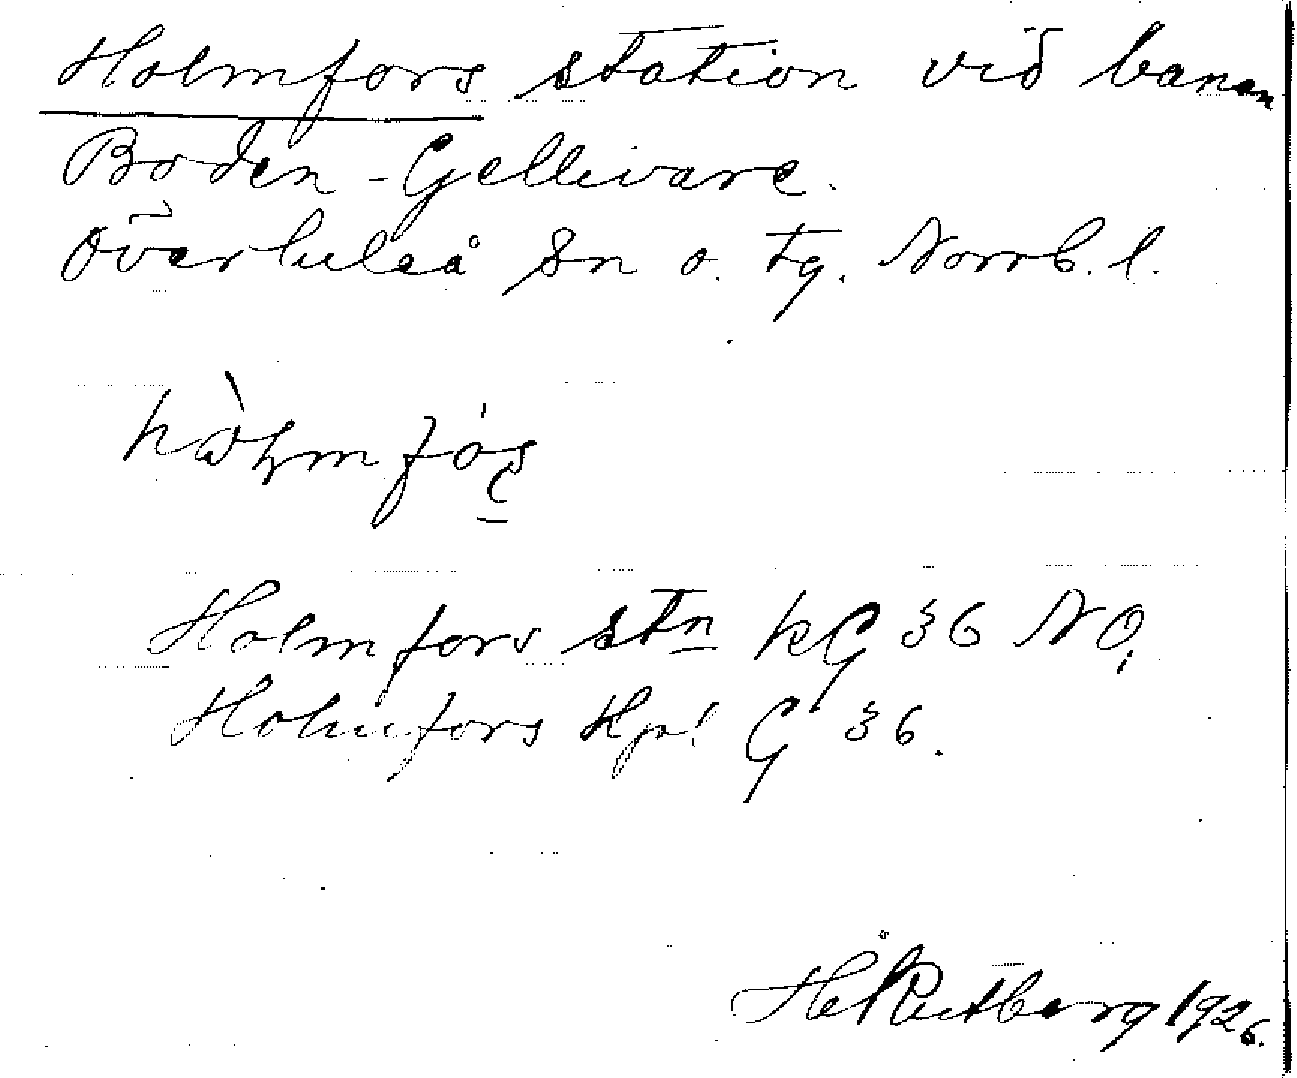 Holmfors station vid banan
Boden-Gellivare.
Överluleå Sn o. tg. Norrb. l.
Holmfors stn kG 36 NO,
Holmfors Hpl G 36.
Rutberg 1926.